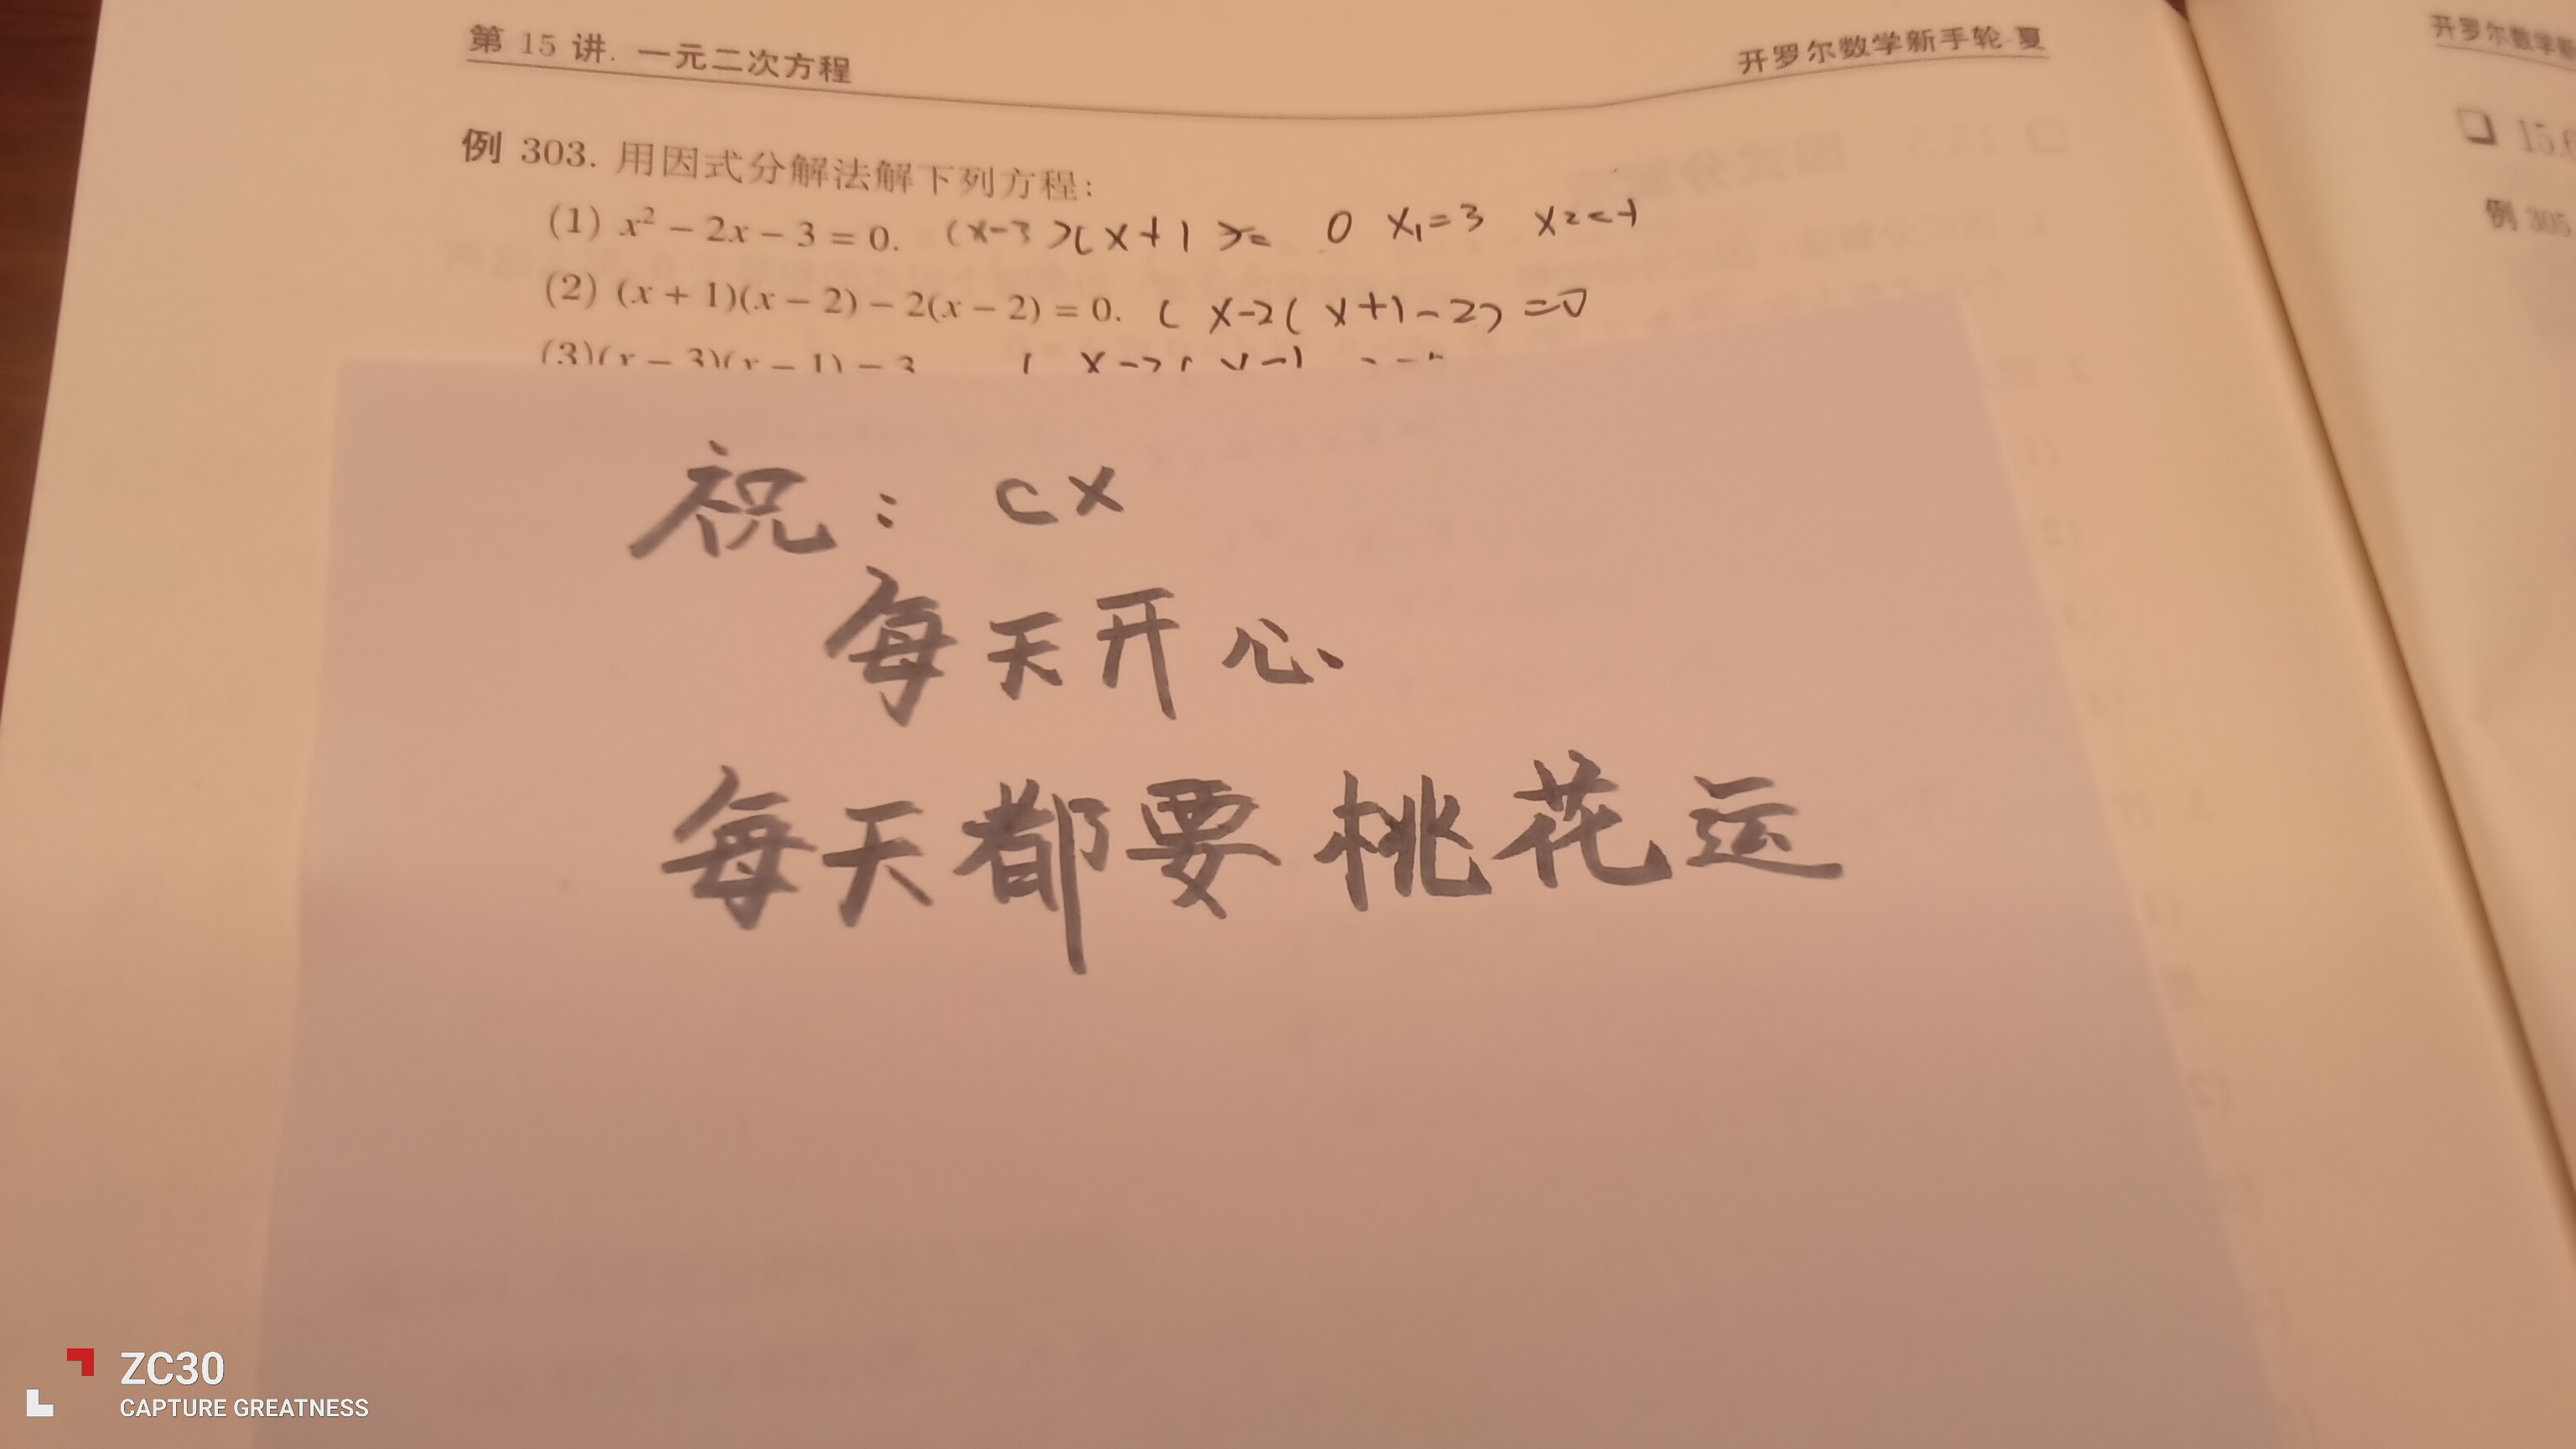 第 15 讲. 一元二次方程
开罗尔数学新手轮-夏
例 303. 用因式分解法解下列方程:
(1) x² − 2x − 3 = 0. (x-3)(x+1)= 0 x₁=3
(2) (x + 1)(x − 2) − 2(x − 2) = 0. (x-2(x+1-2)=0
(3)(x − 3)(x − 1) = 3
祝：cx
每天开心、
每天都要桃花运
开罗尔数学新
15.6
例 305
ZC30
CAPTURE GREATNESS